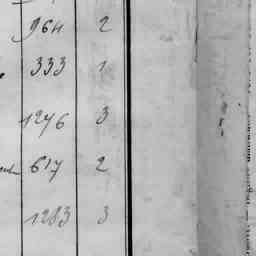 964 2
333 1
1276 3
617 2
1283 3